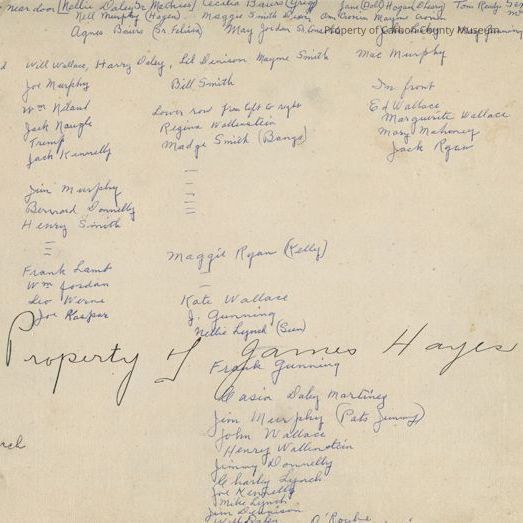 near door Nellie Daley Sr Mathias Cecilia Baiers (Grey) Jane (Doll) Hogan Cherry Tom Ready
Nell Murphy (Hayes) Maggie Smith Ann Cronin Mayme Cronin
Agnes Baiers (Sr. Felicia) May Jordan
Property of Carbon County Museum
Will Wallace, Harry Daley, Lil Denison Mayme Smith Mac Murphy
Joe Murphy Bill Smith
Wm Niland
Jack Naugle
Tremp
Jack Kennelly
Lower row from left to right
Regina Wallenstein
Madge Smith (Bangs)
In front
Ed Wallace
Marguerite Wallace
Mary Mahoney
Jack Ryan
Jim Murphy
Bernard Donnelly
Henry Smith
Maggie Ryan (Kelly)
Frank Lamb
Wm Jordan
Leo Werne
Joe Kaspar
Kate Wallace
J. Gunning
Nellie Lynch (Sun)
Property of James Hayes
Frank Gunning
Casia Daley Martinez
Jim Murphy (Pats Jimmy)
John Wallace
Henry Wallenstein
Jimmy Donnelly
Charley Lynch
Joe Kennelly
Mike Lynch
Jim Dennison
Will Daley O'Rourke